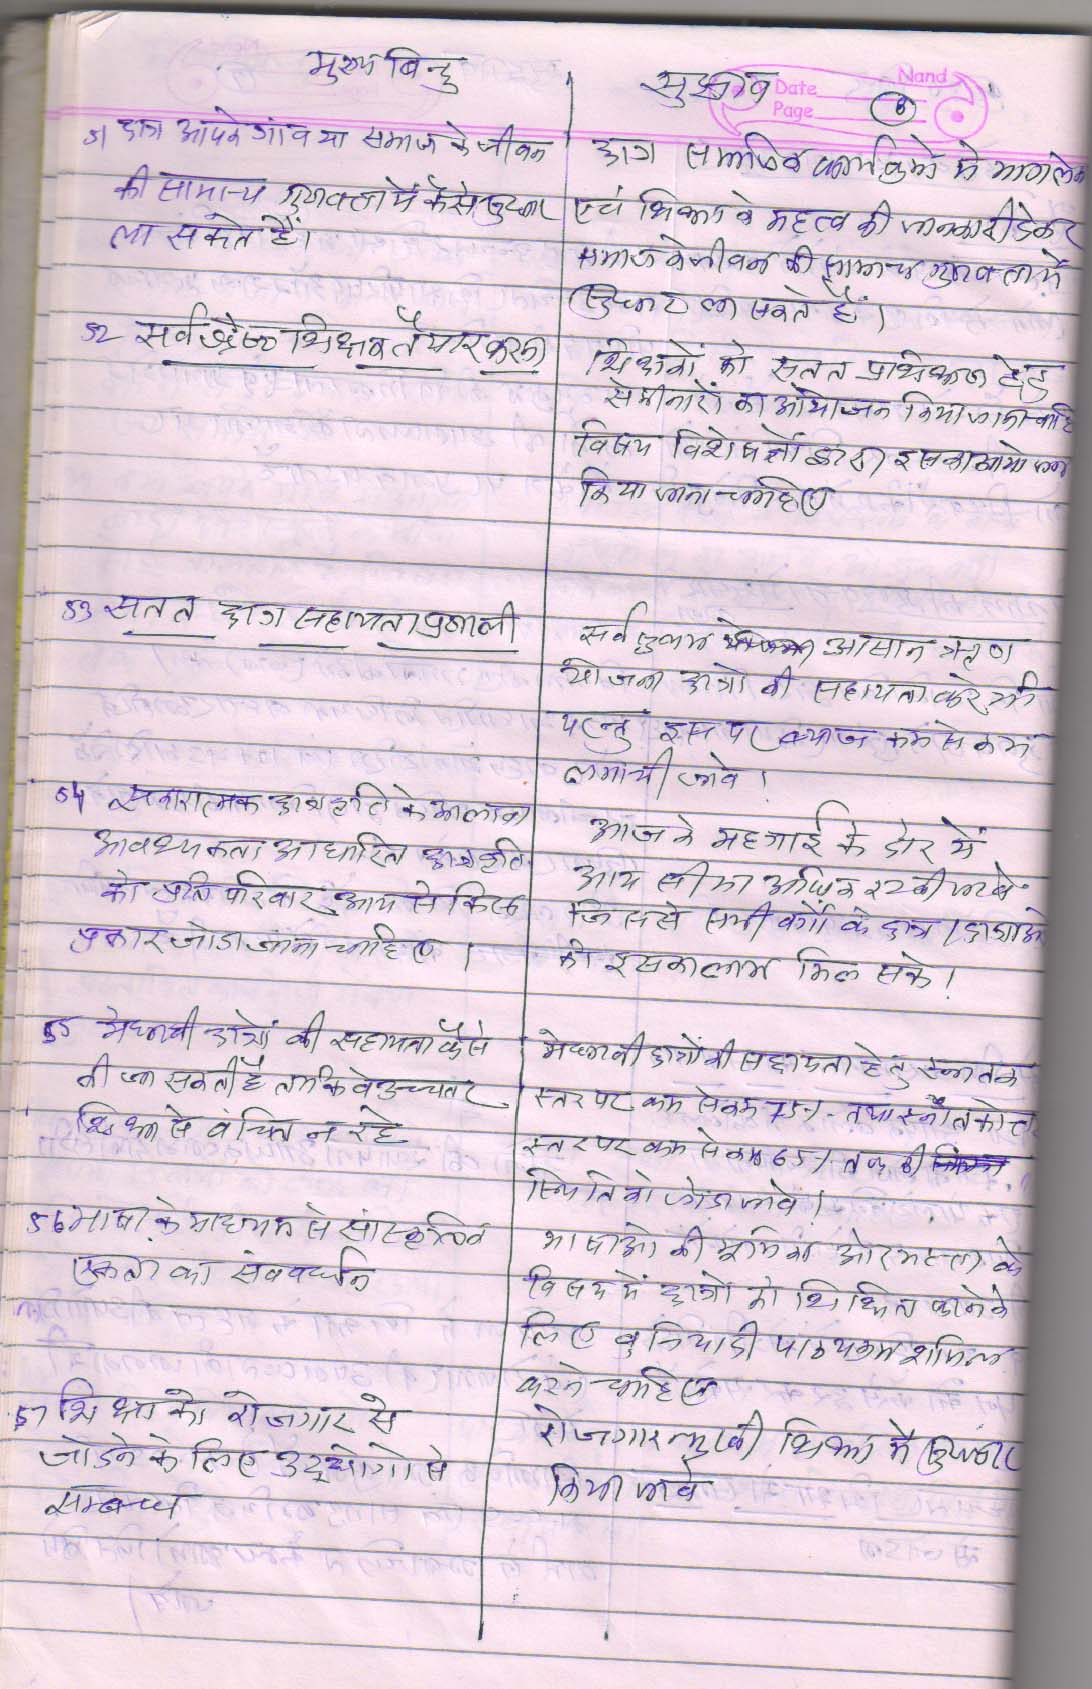 मुख्य बिन्दु
सुझाव
Nand
Date
Page
6
51 छात्र आपके गांव या समाज के जीवन
की सामान्य गुणवत्ता में कैसे सुधार
ला सकते हैं।
छात्र सामाजिक कार्यक्रमों में भाग लेकर
एवं शिक्षा के महत्व की जानकारी देकर
समाज के जीवन की सामान्य गुणवत्ता में
सुधार ला सकते हैं।
52 सर्वश्रेष्ठ शिक्षक तैयार करना
शिक्षकों को सतत प्रशिक्षण हेतु
सेमीनारों का आयोजन किया जाना चाहिए
विषय विशेषज्ञों द्वारा इसका आयोजन
किया जाना चाहिए
53 सतत छात्र सहायता प्रणाली
सर्व प्रथम आसान ऋण
योजना छात्रों की सहायता करेगी
परन्तु इस पर ब्याज कम से कम
लगायी जावे।
54 सकारात्मक छात्रवृति के अलावा
आवश्यकता आधारित छात्रवृति
को प्रति परिवार आय से किस
प्रकार जोडा जाना चाहिए।
आज के महगाई के दोर में
आय सीमा अधिक रखी जावे
जिससे सभी वर्गो के छात्र/छात्राओ
को इसका लाभ मिल सके।
55 मेधावी छात्रों की सहायता कैसे
की जा सकती है ताकि वे उच्चतर
शिक्षा से वंचित न रहे
मेधावी छात्रों की सहायता हेतु स्नातक
स्तर पर कम से कम 75% तथा स्नातकोत्तर
स्तर पर कम से कम 65% तक की
स्थिति को जोडा जावे।
56 भाषा के माध्यम से सांस्कृतिक
एकता का संवर्धन
भाषाओ की भूमिका ओर महत्ता के
विषय में छात्रों को शिक्षित करने के
लिए बुनियादी पाठ्यक्रम शामिल
करने चाहिए
57 शिक्षा को रोजगार से
जोडने के लिए उद्योगो से
सम्बन्ध
रोजगारन्मुखी शिक्षा में सुधार
किया जावे